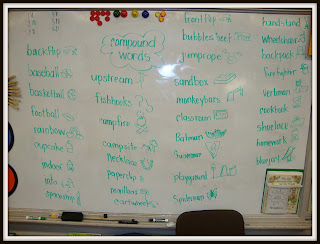 compound
words
backflip
baseball
basketball
football
rainbow
cupcake
indoor
into
spaceship
upstream
fishhooks
campfire
campsite
necklace
paperclip
cartwheels
frontflip
bubblegum
beef
jumprope
sandbox
monkeybars
classroom
Batman
playground
Spiderman
handstand
wheelchair
backpack
firefighter
cookbook
shoelace
homework
bluejay